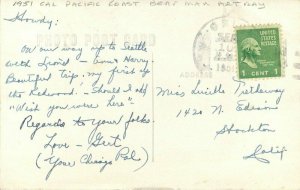 1951 CAL PACIFIC COAST BEAR MAN ART RAY
Howdy:
On our way up to Seattle
with Lorrid - bou't Harry.
Beautiful Trip, my first up
the Redwood - Should I add
"Wish you were here".
Regards to your folks.
Love - Gert
(Your Chicago Pal)
PHOTO POST CARD
ADDRESS
SEP
1 CENT 1
Miss Lucille Tretheway
1420 N. Edison
Stockton
Calif